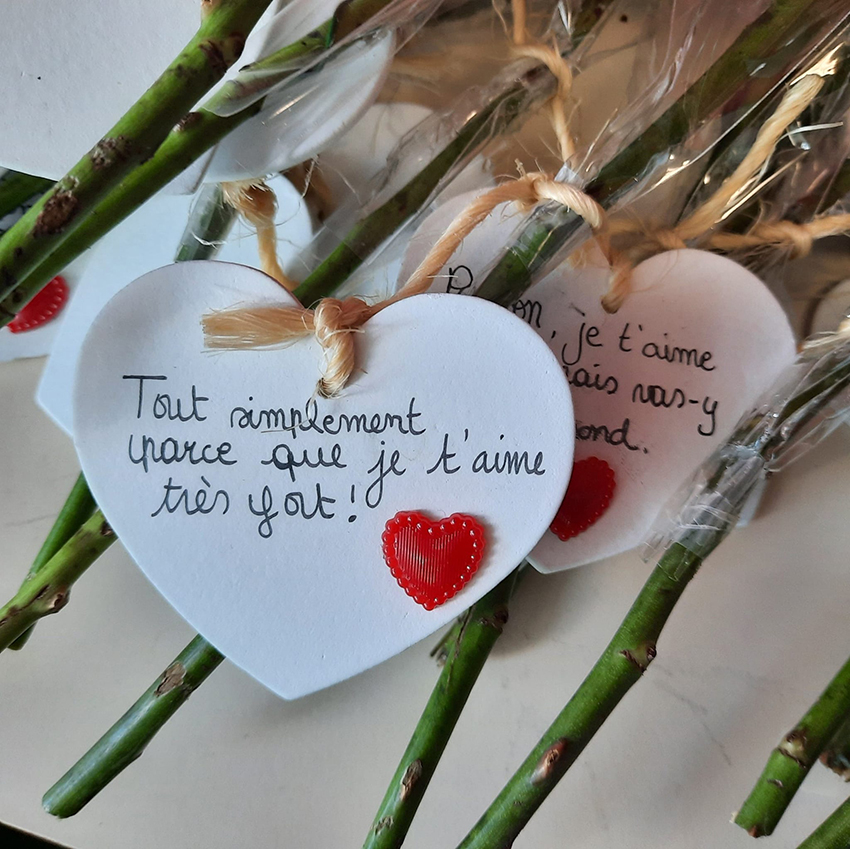 Tout simplement
parce que je t'aime
très fort!
je t'aime
vas-y